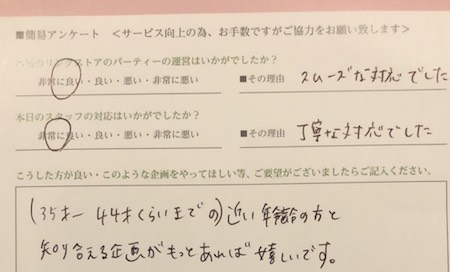 ■簡易アンケート ＜サービス向上の為、お手数ですがご協力をお願い致します＞
ストアのパーティーの運営はいかがでしたか？
非常に良い・良い・悪い・非常に悪い ■その理由 スムーズな対応でした
本日のスタッフの対応はいかがでしたか？
非常に良い・良い・悪い・非常に悪い ■その理由 丁寧な対応でした
こうした方が良い・このような企画をやってほしい等、ご要望がございましたらご記入ください。
(35才ー44才くらいまでの)近い年齢の方と
知り合える企画がもっとあれば嬉しいです。